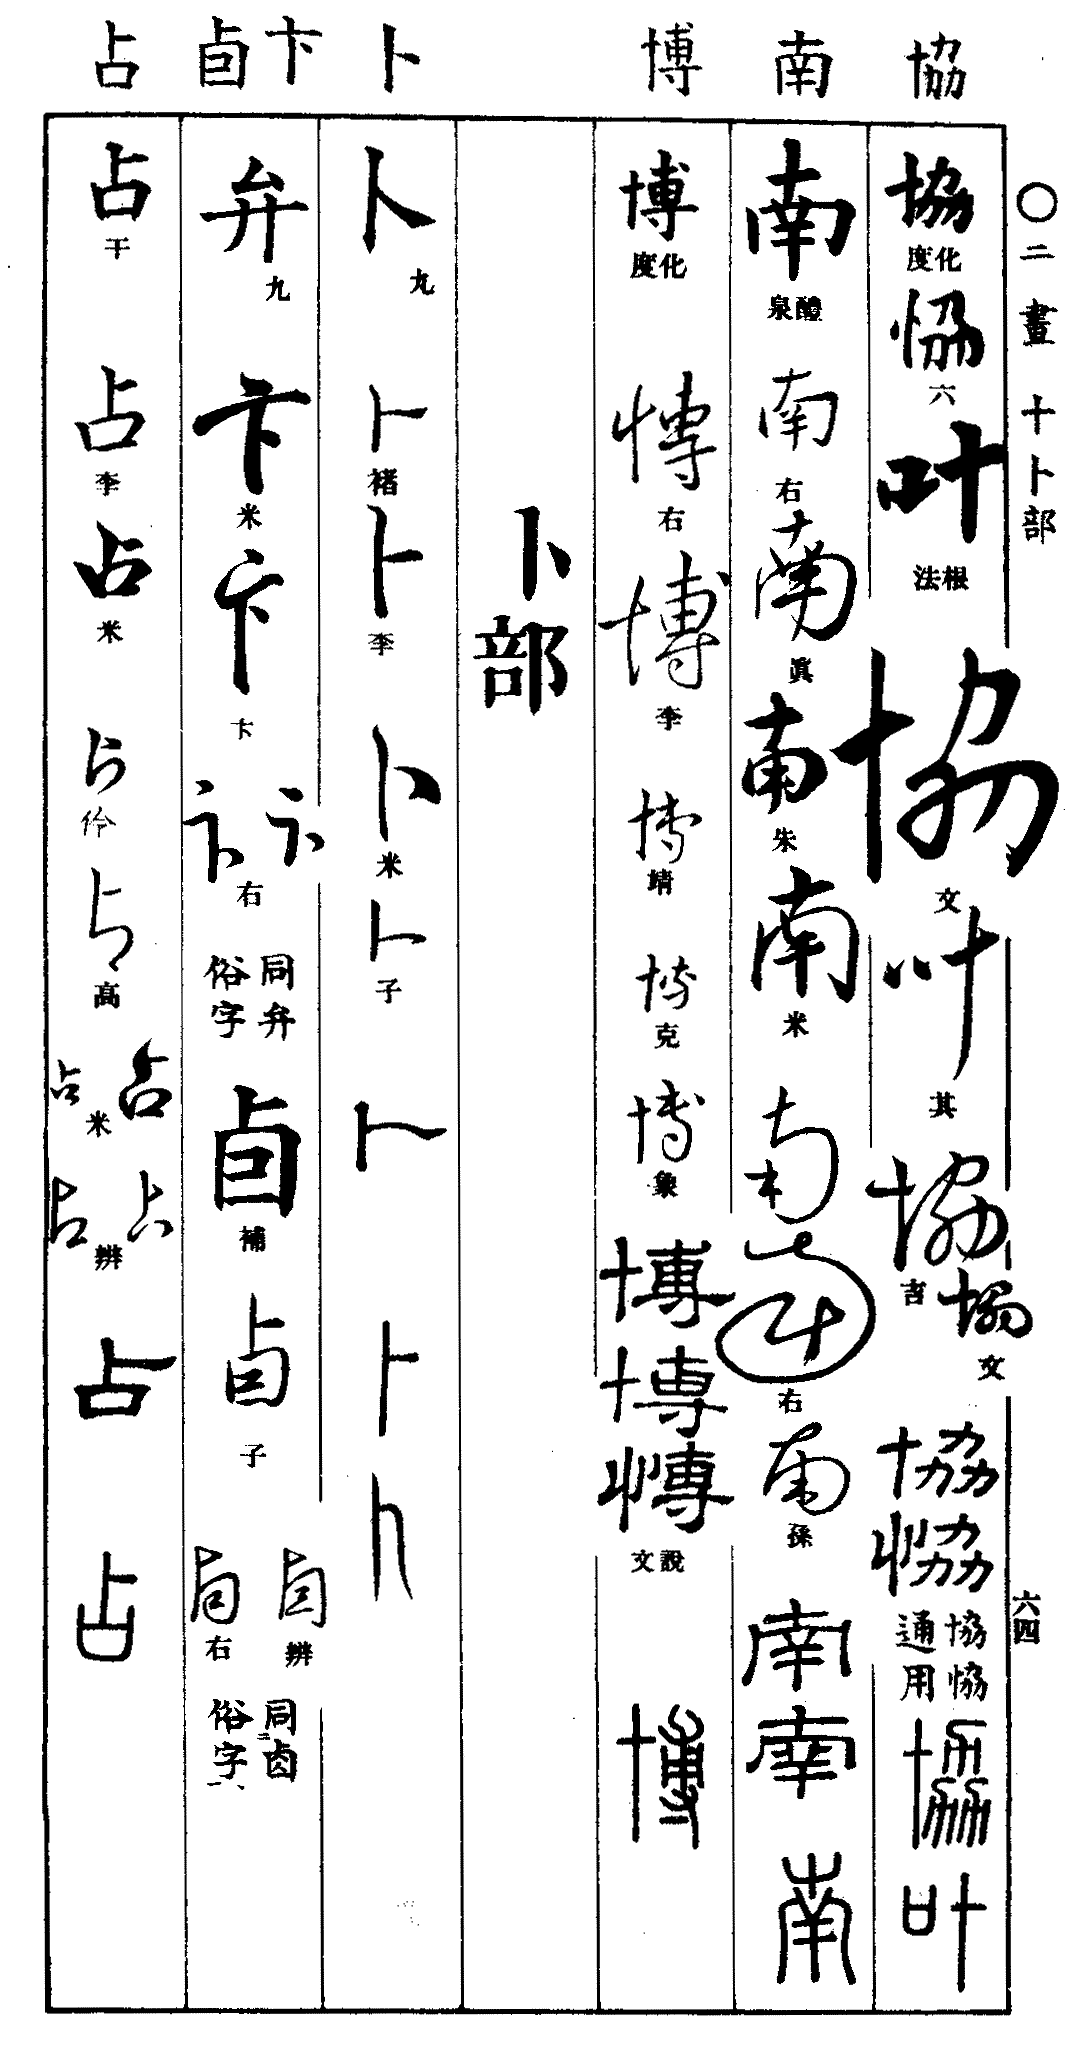 協
南
博
卜
卞
卣
占
〇二畫 十卜部
六四
協
度化
恊
六
叶
法根
協
文
叶
其
協
吉
協
文
協
恊
協恊
通用
協
叶
南
泉醴
南
右
南
眞
南
朱
南
米
南
南
右
南
孫
南
南
南
博
度化
博
右
博
李
博
靖
博
克
博
象
博
博
愽
文說
博
卜部
卜
九
卜
褚
卜
李
卜
米
卜
子
卜
卜
卜
弁
九
卞
米
卞
卞
卞
卞
右
同弁
俗字
卣
補
卣
子
卣
辨
卣
右
同卤
俗字
占
干
占
李
占
米
占
伶
占
高
占
占
米
占
占
辨
占
占